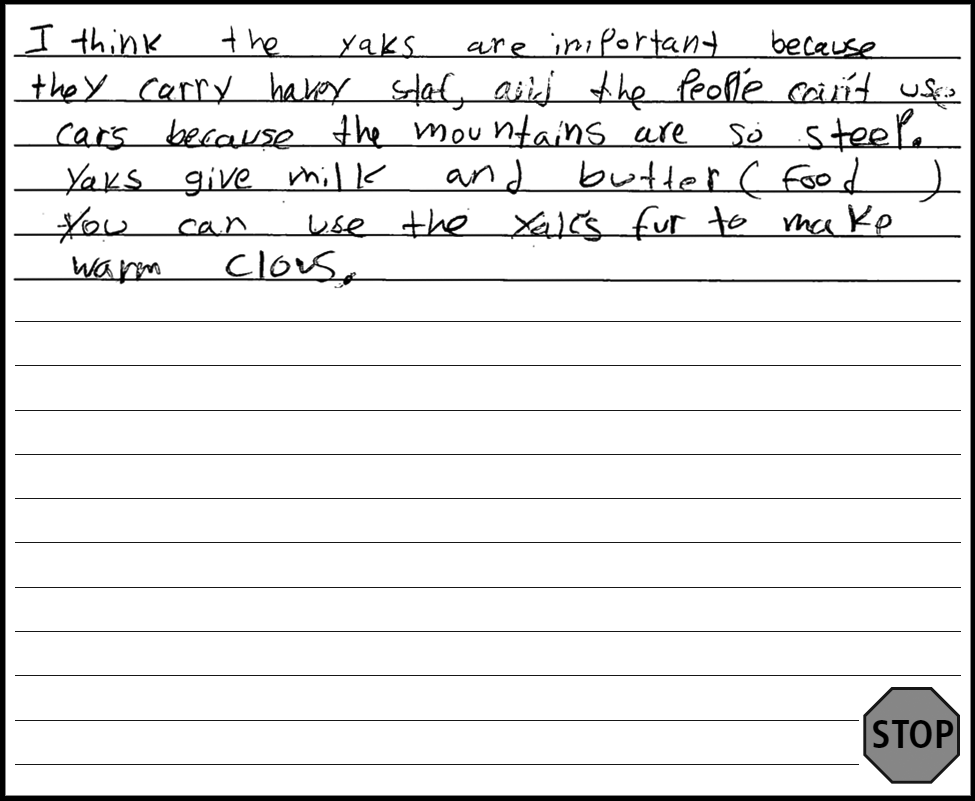 I think the yaks are important because
they carry havey staf, and the people can't use
cars because the mountains are so steep.
Yaks give milk and butter (food)
You can use the yak's fur to make
warm clous.
STOP